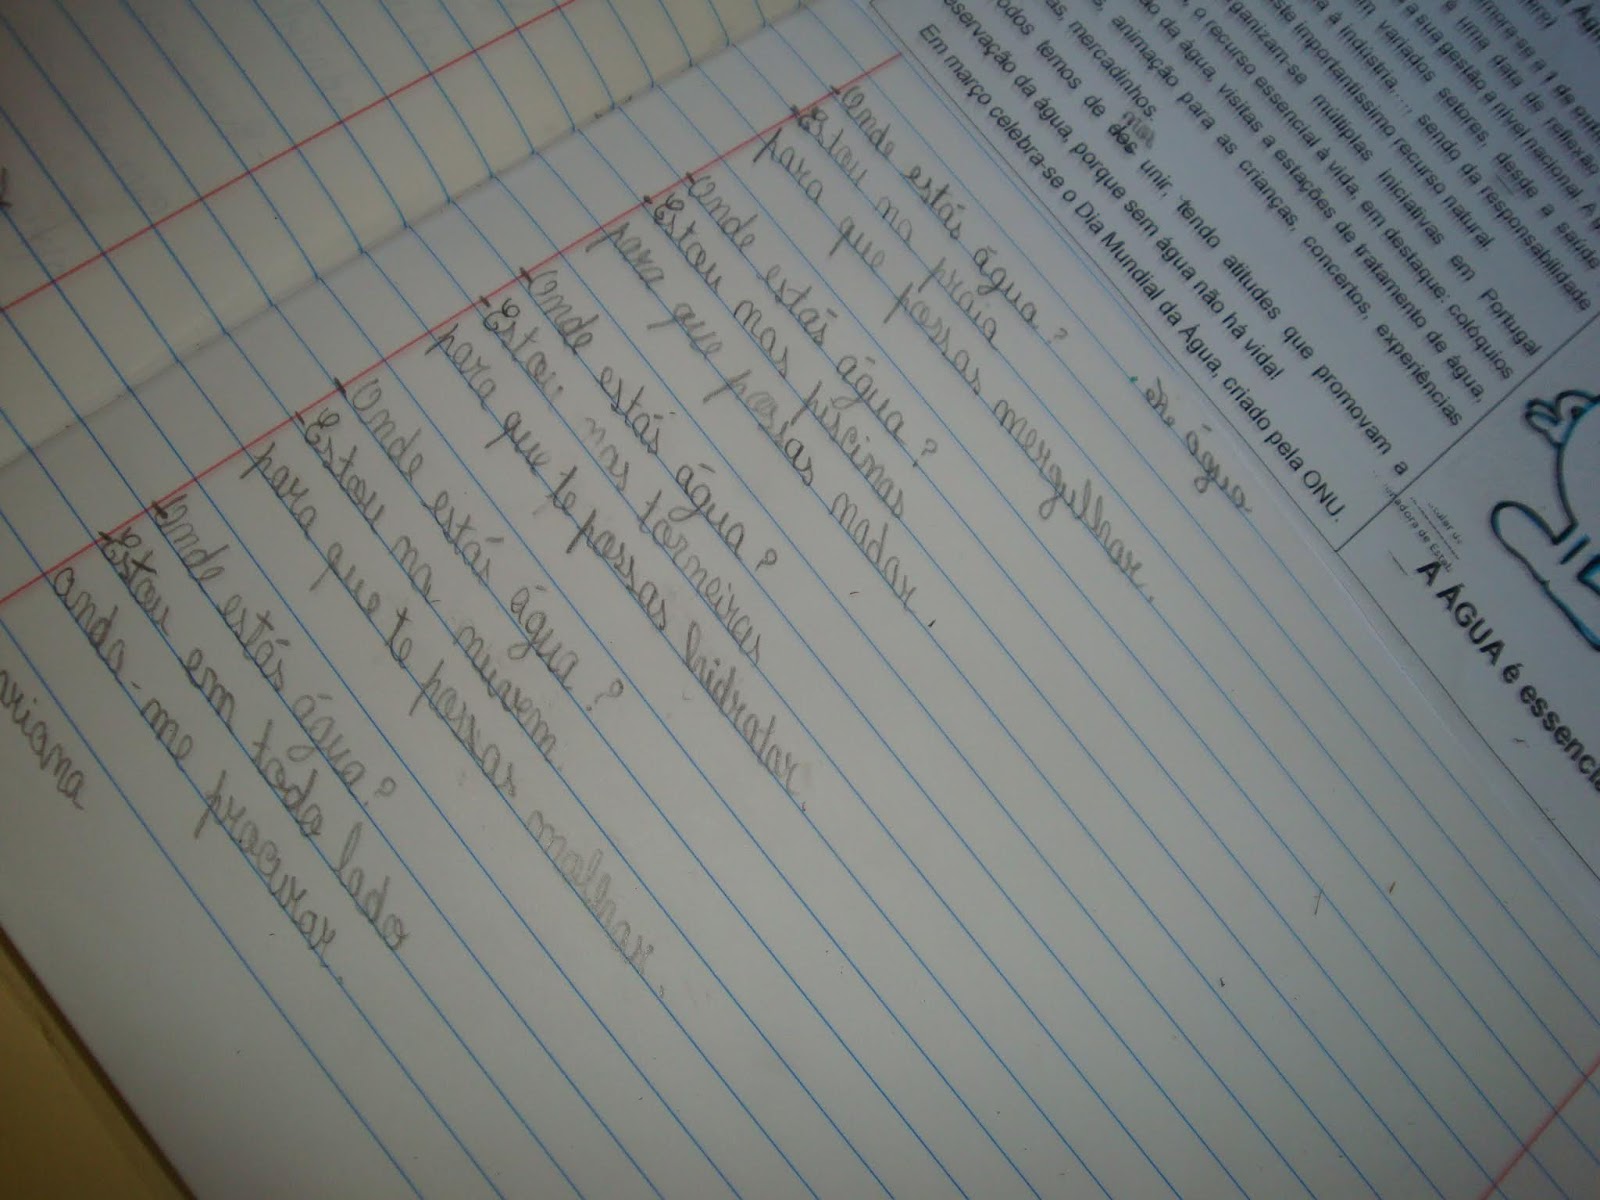 mara-se a 1 de outu
é uma data de reflexão
a sua gestão a nível nacional. A
m variados setores, desde a saúde
a à indústria,..., sendo da responsabilidade
ste importantíssimo recurso natural.
rganizam-se múltiplas iniciativas em Portugal
, o recurso essencial à vida, em destaque: colóquios
ão da água, visitas a estações de tratamento de água,
s, animação para as crianças, concertos, experiências
as, mercadinhos.
odos temos de nos unir, tendo atitudes que promovam a
eservação da água, porque sem água não há vida!
Em março celebra-se o Dia Mundial da Água, criado pela ONU.
A ÁGUA é essencia
água
- Onde estás água?
- Estou na práia
para que possas mergulhar.
- Onde estás água?
- Estou nas piscinas
para que possas nadar.
- Onde estás água?
- Estou nas torneiras
para que te possas hidratar.
- Onde estás água?
- Estou na nuvem
para que te possas molhar.
- Onde estás água?
- Estou em todo lado
anda-me procurar.
ariana